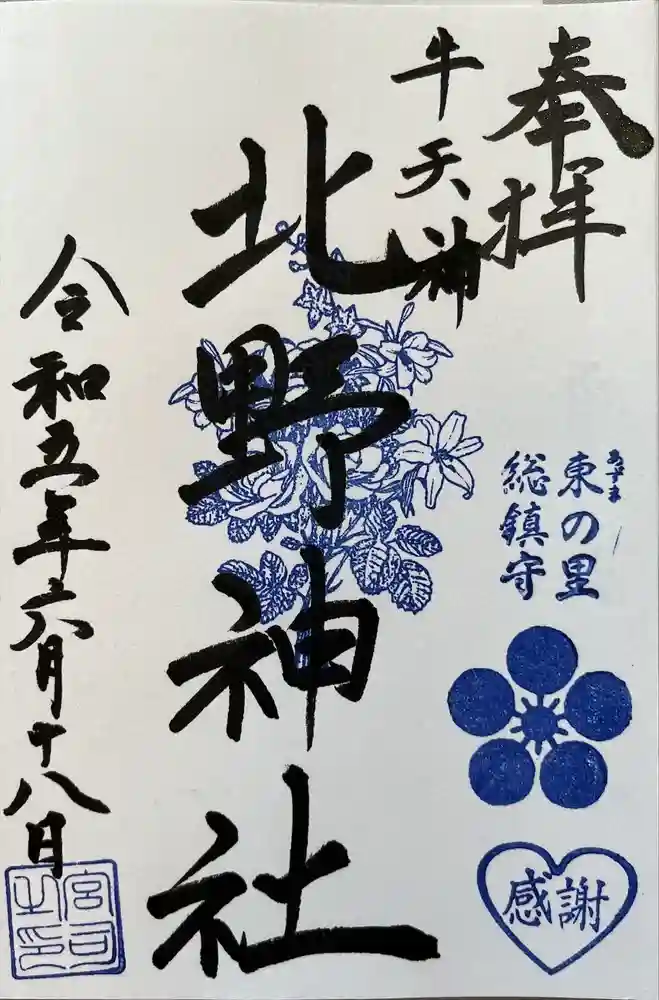 奉拝
牛天神
北野神社
東の里
あずま
総鎮守
感謝
令和五年六月十八日
宮司之印